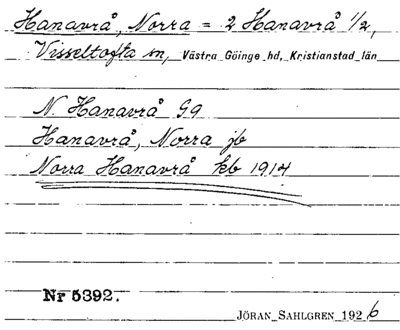 Hanavrå, Norra = 2 Hanavrå 1/2,
Visseltofta sn, Västra Göinge hd, Kristianstad län
N. Hanavrå Gg
Hanavrå, Norra jb
Norra Hanavrå kb 1914
Nr 5392.
JÖRAN SAHLGREN 1926